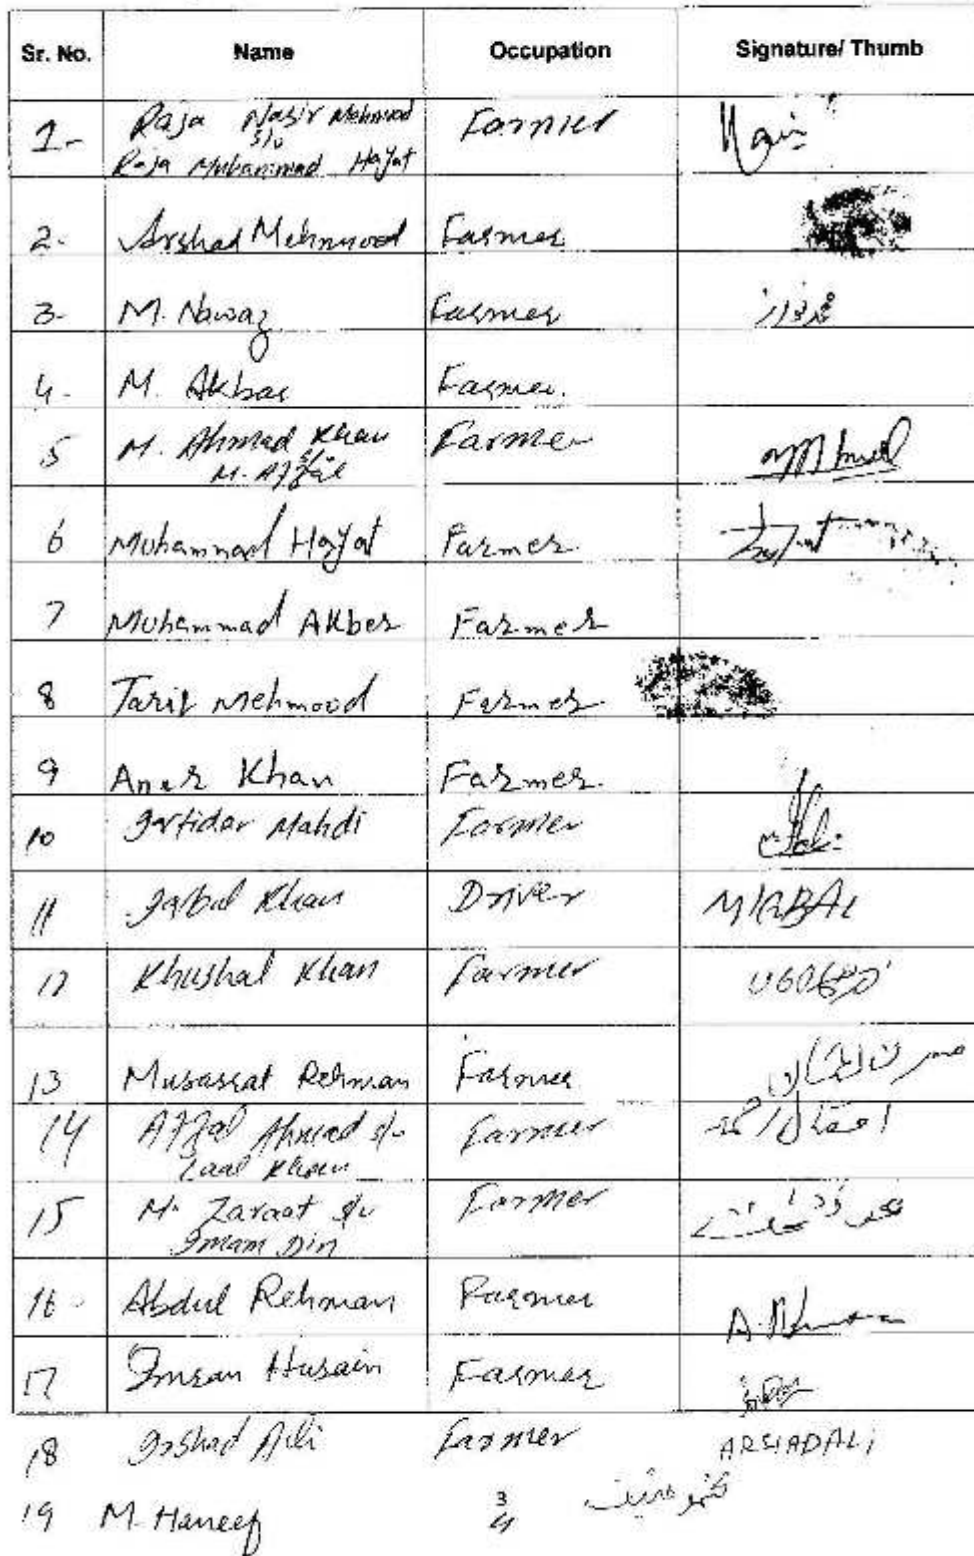 Sr. No. Name Occupation Signature/ Thumb
1- Raja Nasir Mehmood Farmer
S/o
Raja Muhammad Hayat
2- Arshad Mehmood Farmer
3- M. Nawaz Farmer محمد نواز
4- M. Akbar Farmer.
5 M. Ahmad Khan Farmer
S/o
M. Afzal
6 Muhammad Hayat Farmer
7 Muhammad Akber Farmer
8 Tariq Mehmood Farmer
9 Amer Khan Farmer.
10 Iqtidar Mahdi Farmer
11 Iqbal Khan Driver M IQBAL
12 Khushal Khan Farmer
13 Musassat Rehman Farmer
14 Afzal Ahmed S/o Farmer
Laal Khan
15 M. Zaraat S/o Farmer
Imam Din
16 - Abdul Rehman Farmer
17 Imran Husain Farmer
18 Irshad Ali Farmer ARSHAD ALi
19 M. Haneef محمد حنیف
3
4